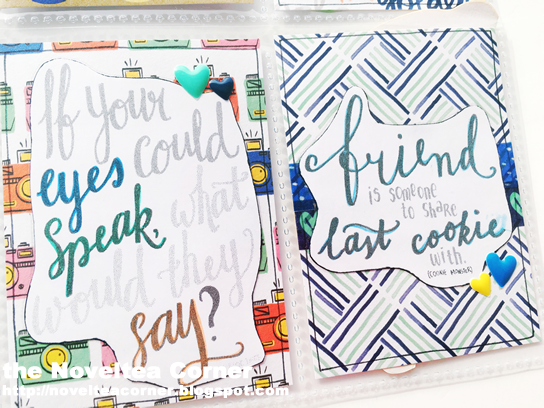 If Your
eyes could
speak, what
would they
say?
friend
is someone
to share
last cookie
with.
(COOKIE MONSTER)
the Noveltea Corner
http://novelteacorner.blogspot.com